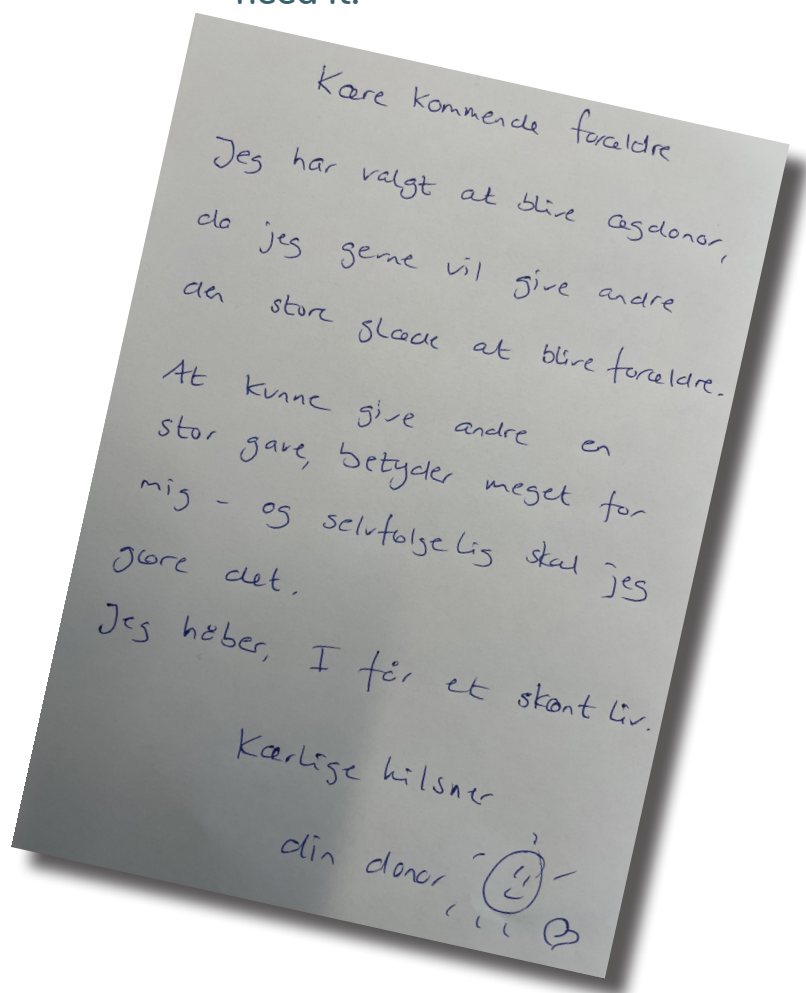 need it.
Kære kommende forældre
Jeg har valgt at blive ægdonor,
da jeg gerne vil give andre
den store glæde at blive forældre.
At kunne give andre en
stor gave, betyder meget for
mig - og selvfølgelig skal jeg
gøre det.
Jeg håber, I får et skønt liv.
Kærlige hilsner
din donor